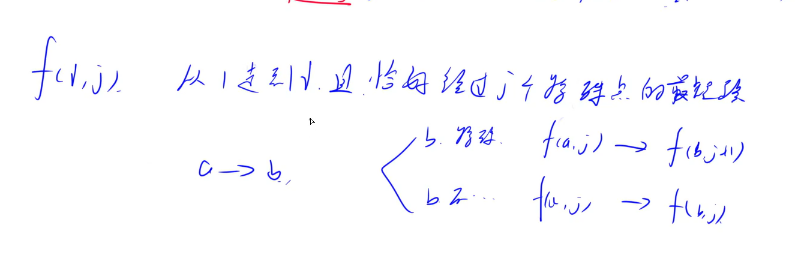 f(v,j) 从1走到v.且恰好经过j个特殊点的最短路
b.特殊. f(a,j) → f(b,j+1)
a → b,
b不… f(a,j) → f(b,j)